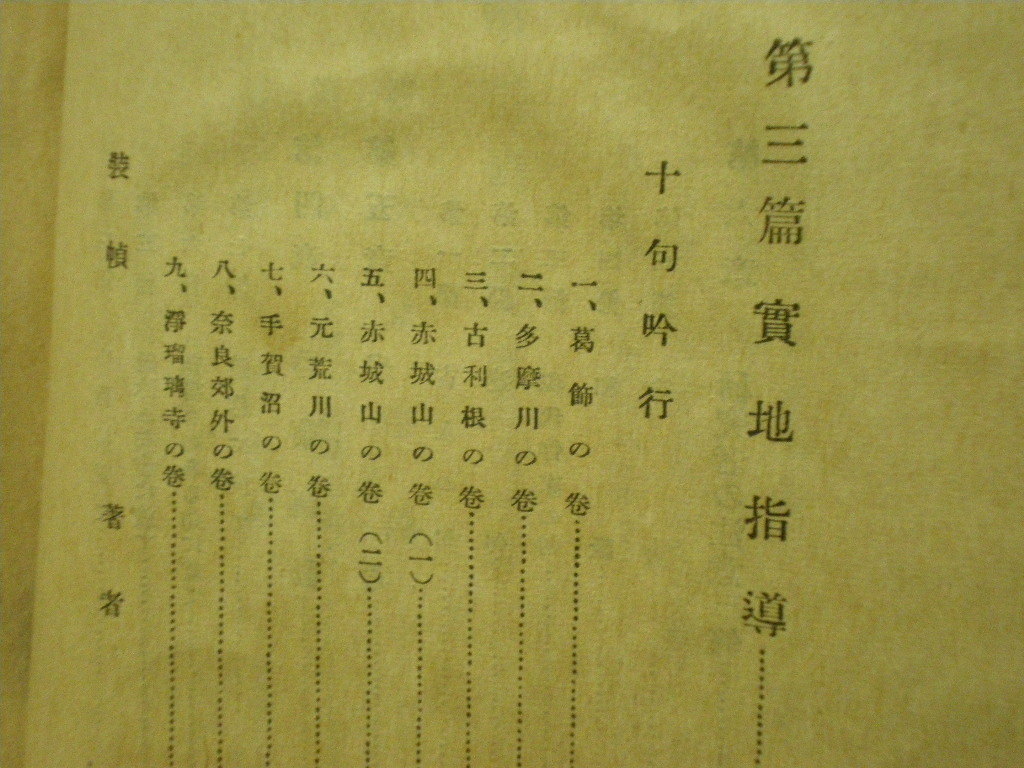 第三篇 實地指導
十句吟行
一、葛飾の卷
二、多摩川の卷
三、古利根の卷
四、赤城山の卷(一)
五、赤城山の卷(二)
六、元荒川の卷
七、手賀沼の卷
八、奈良郊外の卷
九、淨瑠璃寺の卷
裝幀 著者